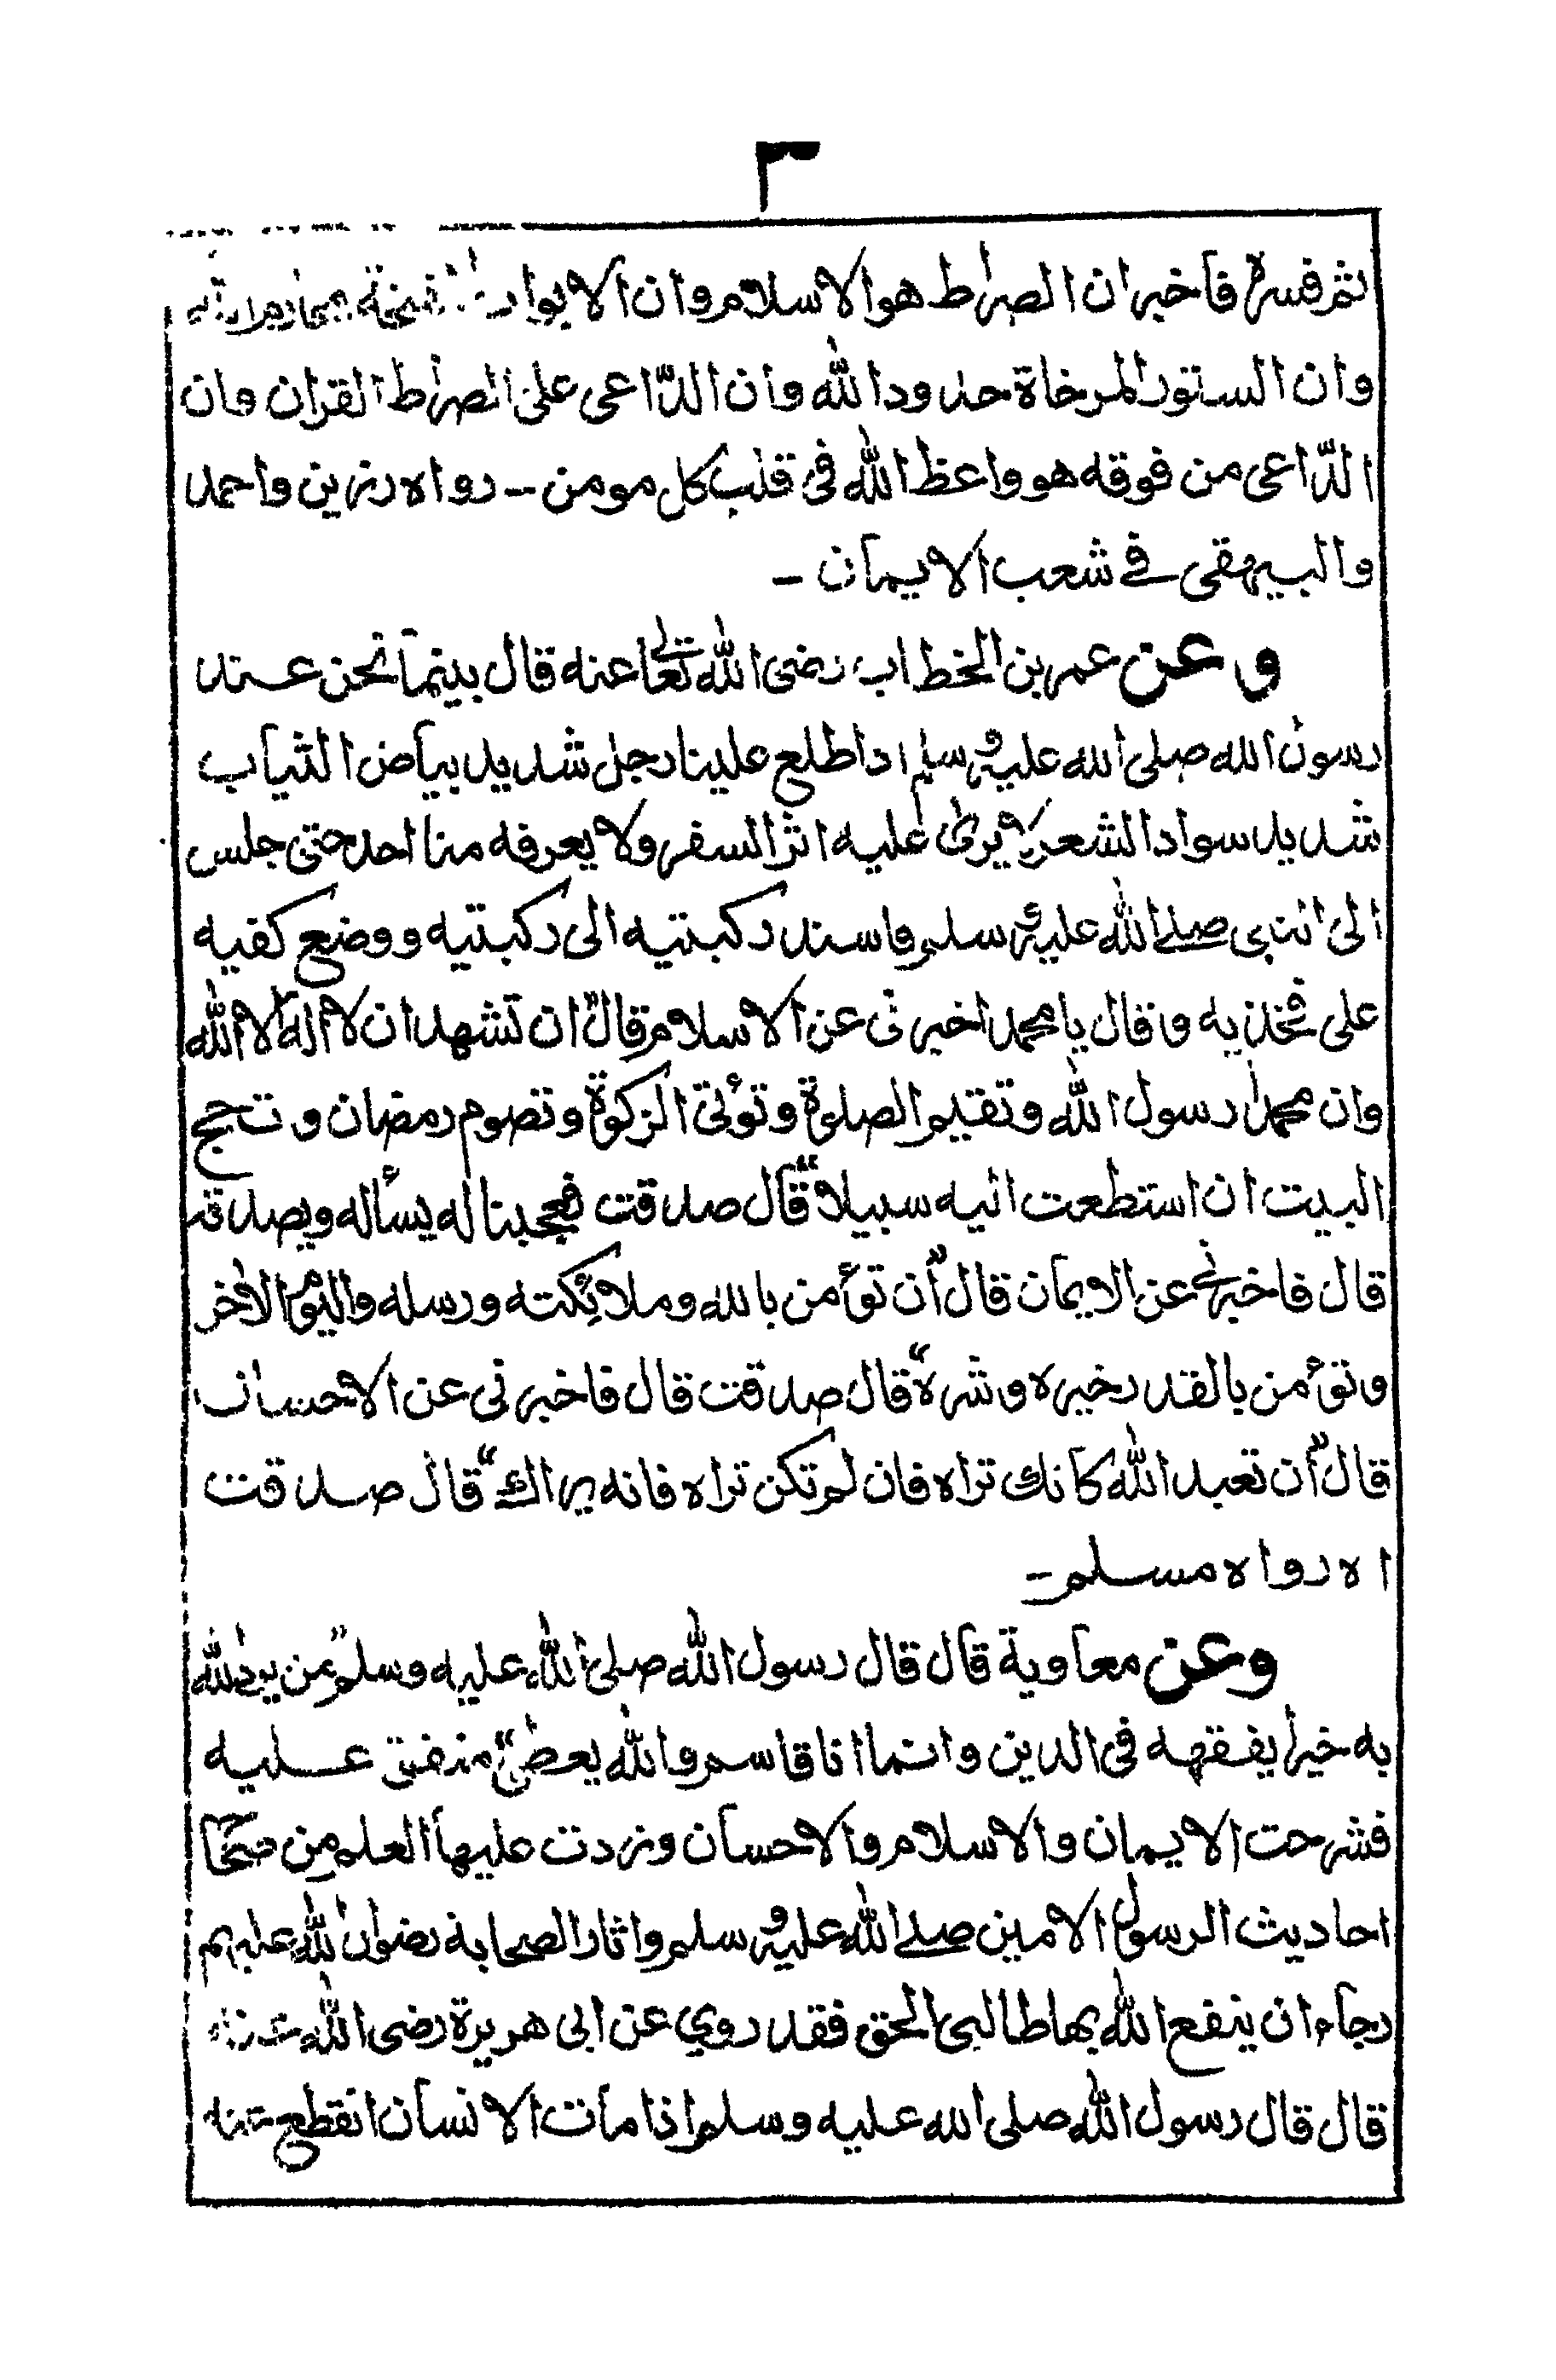 ٣
ثم فسره فاخبر ان الصراط هو الاسلام وان الابواب المفتحة محارم الله
وان الستور المرخاة حدود الله وان الدّاعى على الصراط القران وان
الدّاعى من فوقه هو واعظ الله فى قلب كل مومن - رواه رزين واحمد
والبيهقى فے شعب الايمان -
وعن عمر بن الخطاب رضى الله تعالى عنه قال بينما نحن عند
رسول الله صلى الله عليه وسلم اذ اطلع علينا رجل شديد بياض الثياب
شديد سواد الشعر لا يرى عليه اثر السفر ولا يعرفه منا احد حتى جلس
الى النبى صلے الله عليه وسلم فاسند ركبتيه الى ركبتيه ووضع كفيه
على فخذيه وقال يا محمد اخبرنى عن الاسلام قال "ان تشهد ان لا اله الا الله
وان محمدا رسول الله وتقيم الصلوة وتؤتى الزكوة وتصوم رمضان وتحج
البيت ان استطعت اليه سبيلا" قال صدقت فعجبنا له يسأله ويصدقه
قال فاخبرنے عن الايمان قال "أن تؤمن بالله وملائكته ورسله واليوم الاخر
وتؤمن بالقدر خيره وشره" قال صدقت قال فاخبرنى عن الاحسان
قال "أن تعبد الله كانك تراه فان لم تكن تراه فانه يراك" قال صدقت
اه رواه مسلم -
وعن معاوية قال قال رسول الله صلى الله عليه وسلم "من يرد الله
به خيرا يفقهه فى الدين وانما انا قاسم والله يعطى" متفق عليه
فشرحت الايمان والاسلام والاحسان وزدت عليها العلم من صحاح
احاديث الرسول الامين صلے الله عليه وسلم واثار الصحابة رضوان الله عليهم
رجاء ان ينفع الله بها طالبى الحق فقد روي عن ابى هريرة رضى الله عنه
قال قال رسول الله صلى الله عليه وسلم اذا مات الانسان انقطع عنه